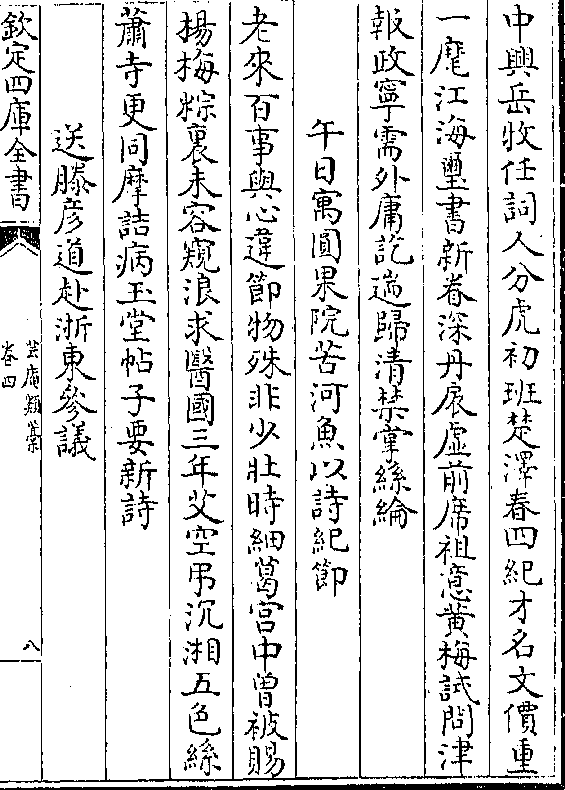 中興岳牧任詞人分虎初班楚澤春四紀才名文價重
一麾江海璽書新眷深丹扆虛前席祖憶黄梅試問津
報政寧需外庸訖遄歸清禁掌絲綸
午日寓圓果院苦河魚以詩紀節
老來百事與心違節物殊非少壯時細葛宫中曽被賜
楊梅粽裏未容窺浪求醫國三年艾空弔沉湘五色絲
蕭寺更同摩詰病玉堂帖子要新詩
送滕彦道赴浙東參議
欽定四庫全書
芸庵類藁
卷四
八